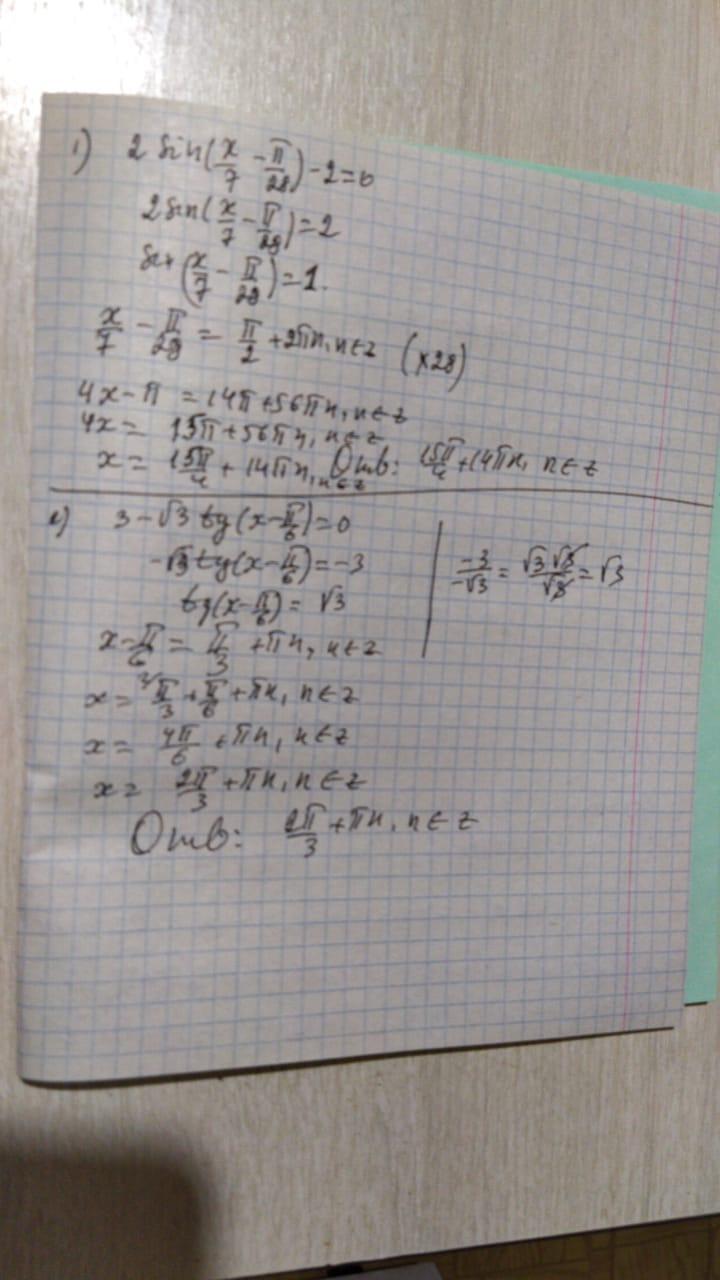 1) 2 sin(x/7 - π/28) - 2 = 0
2 sin(x/7 - π/28) = 2
sin(x/7 - π/28) = 1.
x/7 - π/28 = π/2 + 2πn, n∈z (×28)
4x - π = 14π + 56πn, n∈z
4x = 15π + 56πn, n∈z
x = 15π/4 + 14πn, n∈z Отв: 15π/4 + 14πn, n∈z
2) 3 - √3 tg(x - π/6) = 0
-√3 tg(x - π/6) = -3
-3/-√3 = √3·√3/√3 = √3
tg(x - π/6) = √3
x - π/6 = π/3 + πn, n∈z
x = ²⁾π/3 + π/6 + πn, n∈z
x = 4π/6 + πn, n∈z
x = 2π/3 + πn, n∈z
Отв: 2π/3 + πn, n∈z